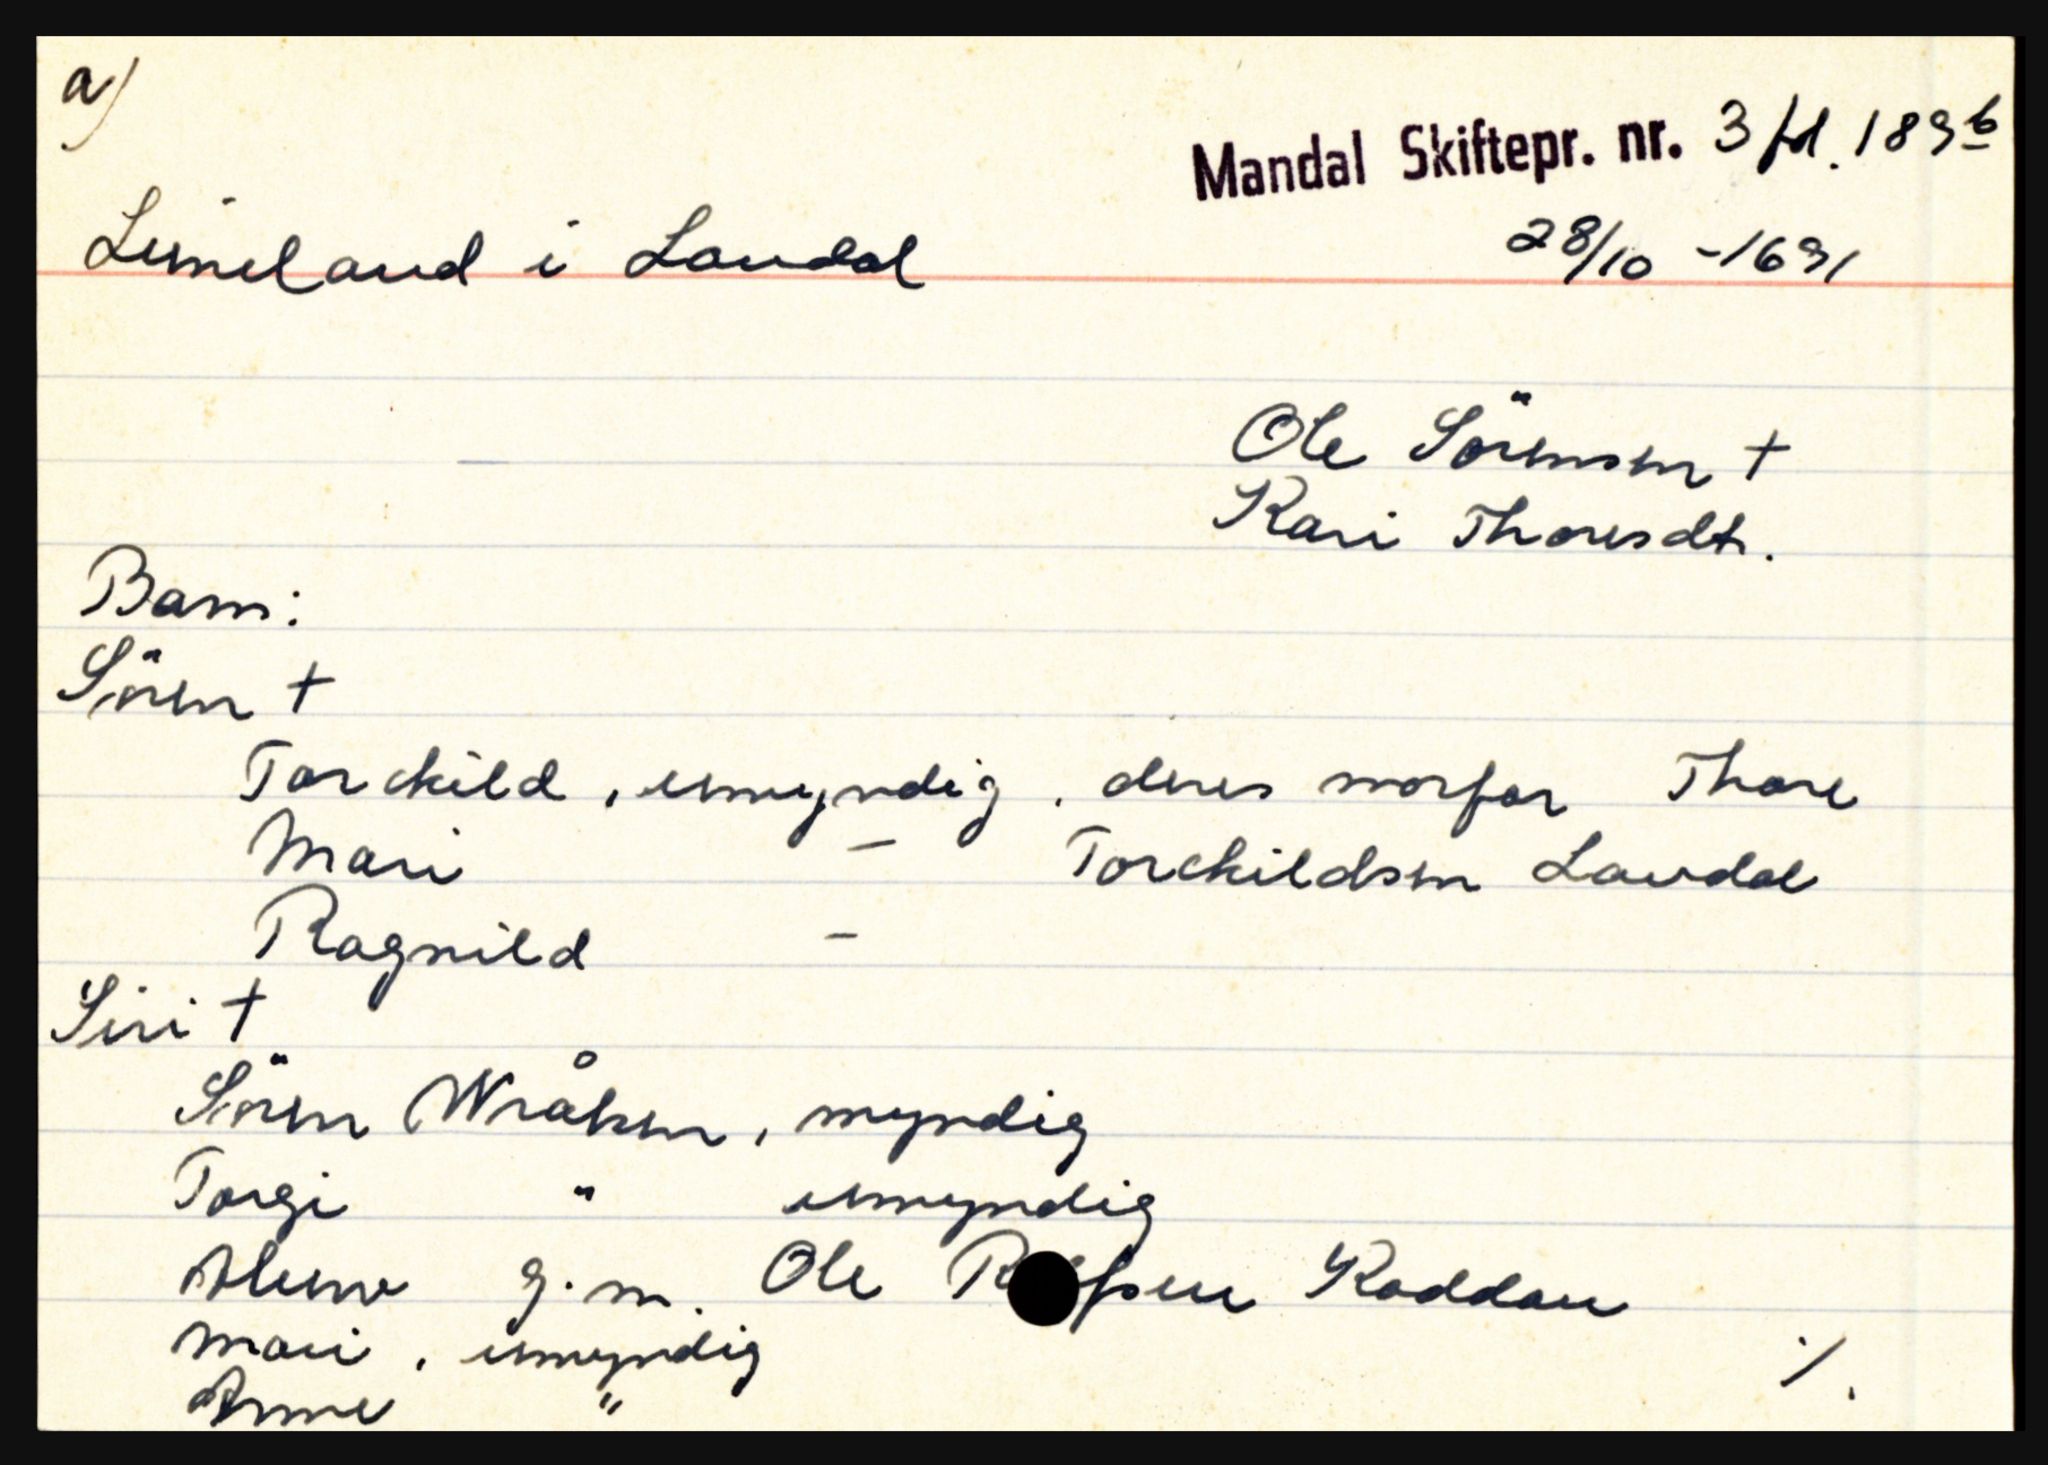 a)
Mandal Skiftepr. nr. 3 fol. 189 b
28/10 -1691
Limeland i Laudal
Ole Sörensen †
Kari Thoresdt.
Barn:
Sören †
Torckild, umyndig, deres morfar Thore
Mari – Torckildsen Laudal
Ragnild –
Siri †
Sören Wråken, myndig
Torgi " umyndig
g.m. Ole Roddan
Mari, umyndig
Anne "
%.